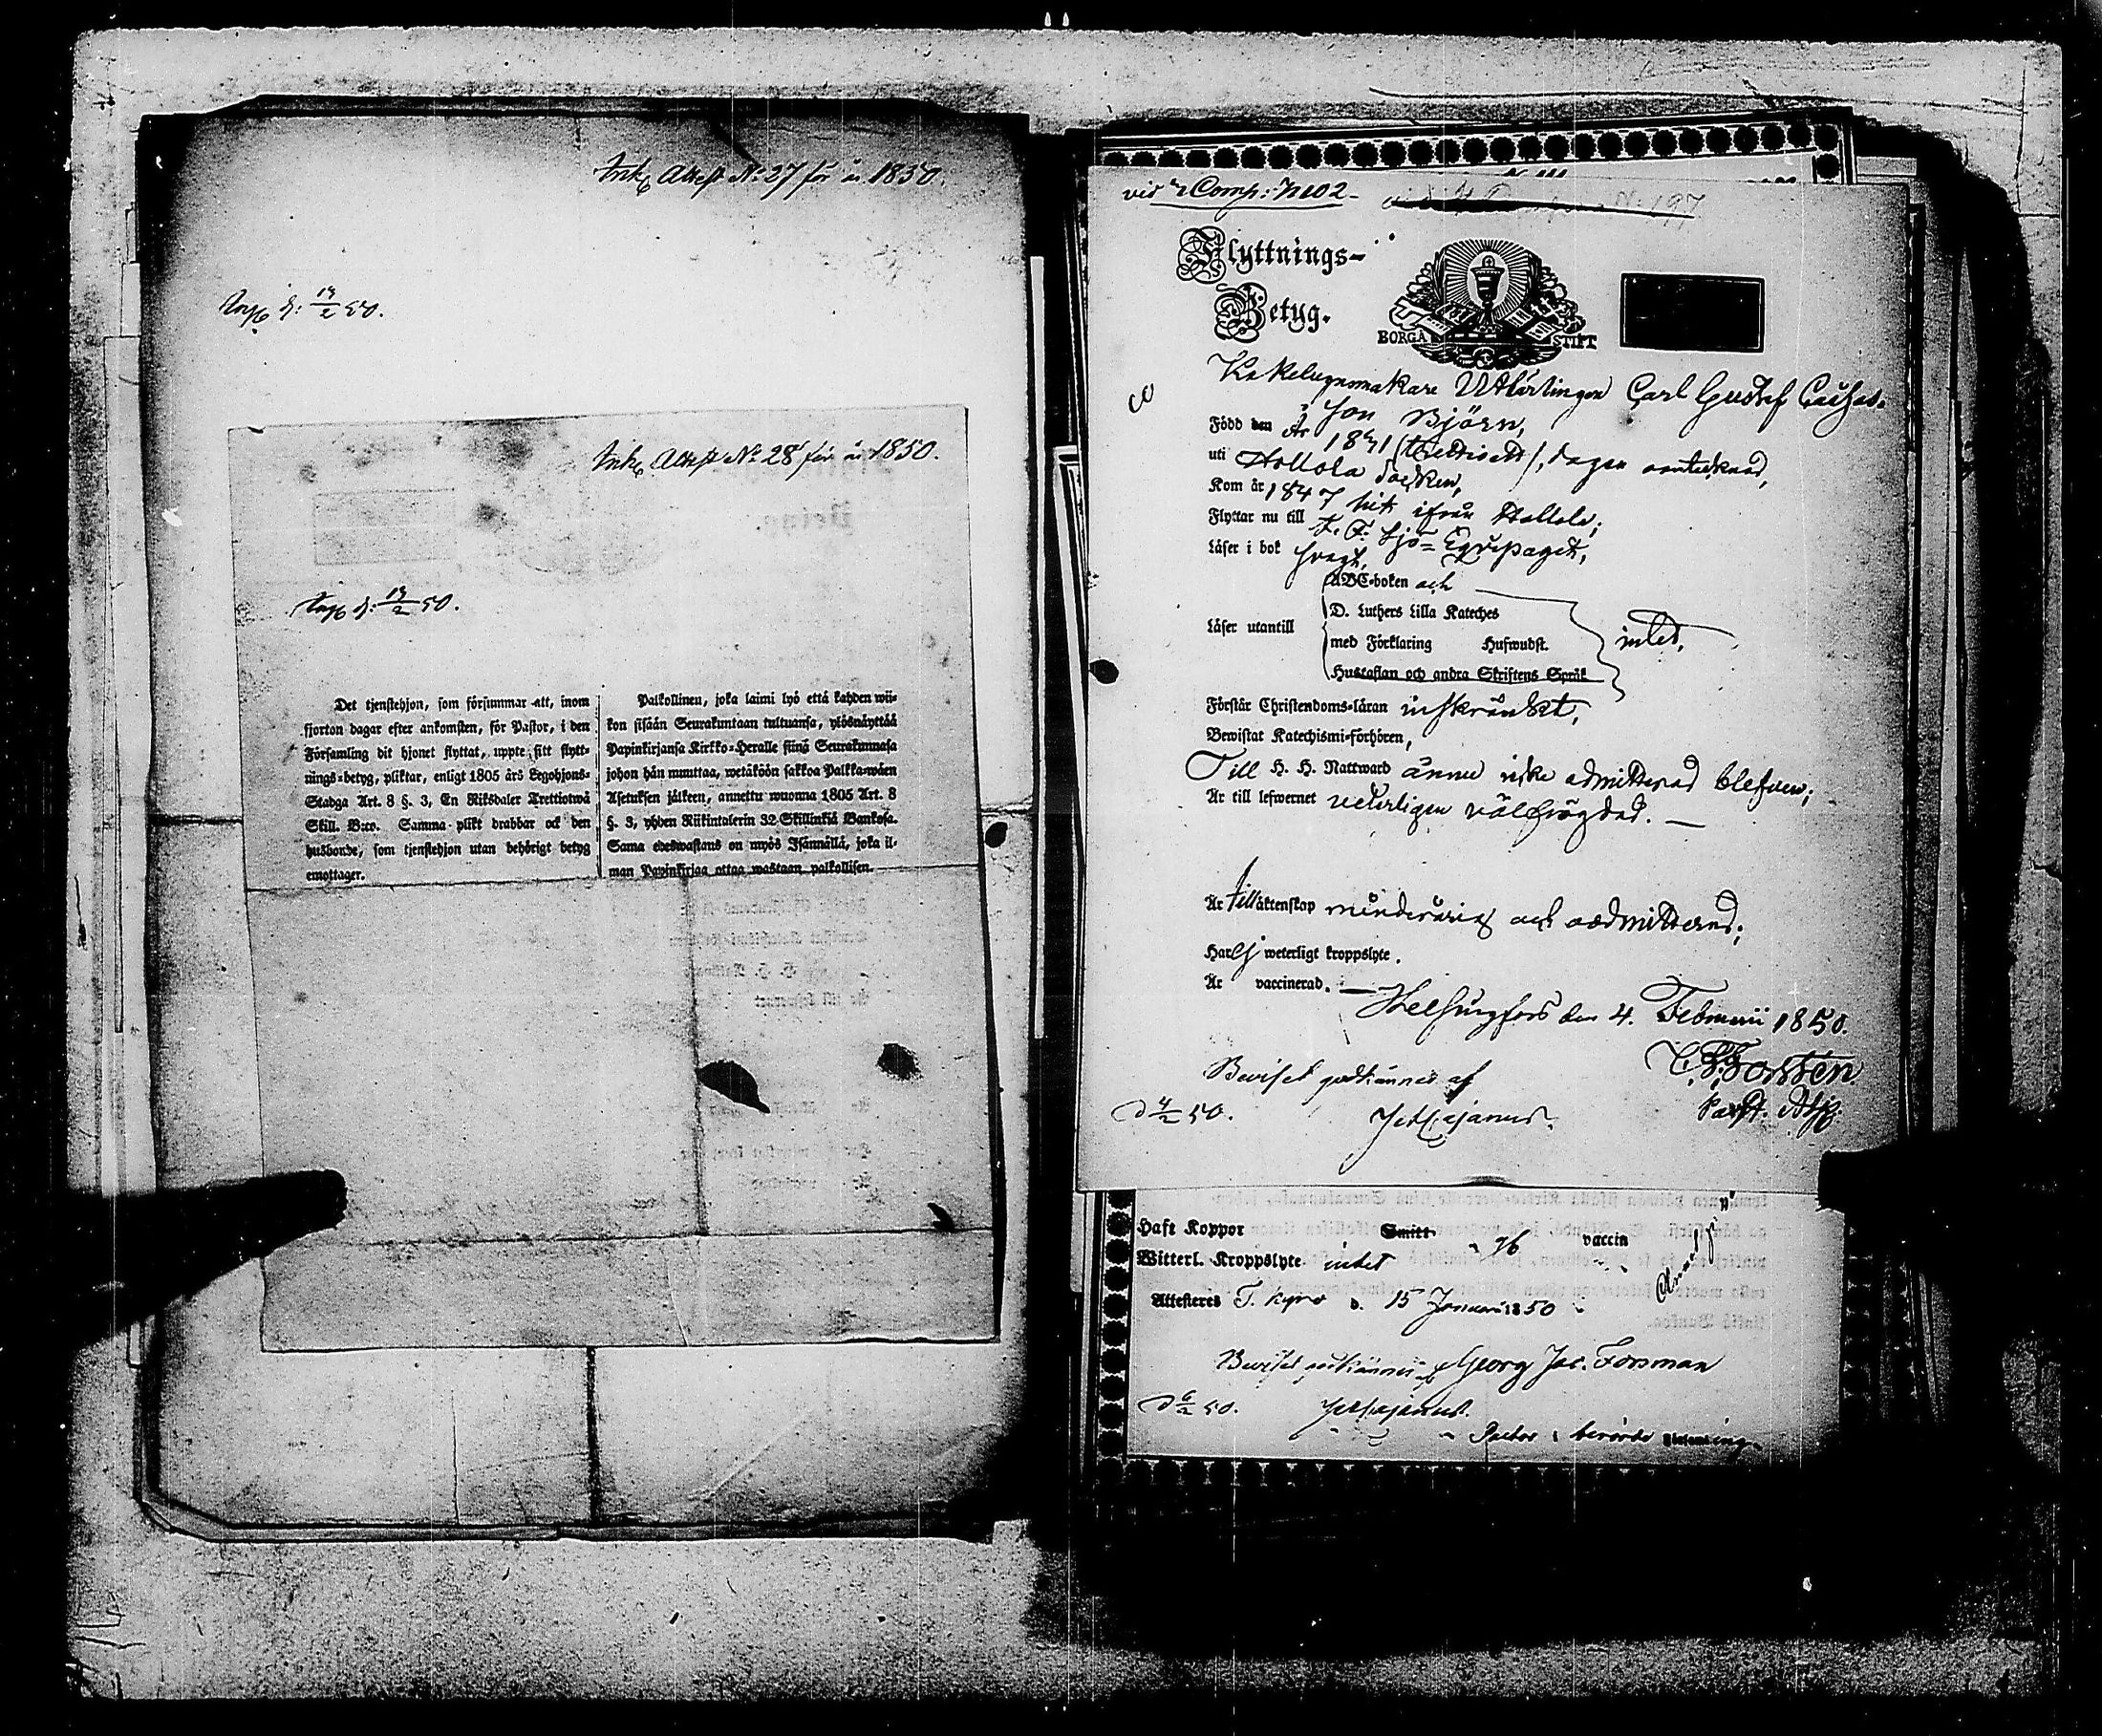 Ink. Attest No 27 för år 1850.
Ank. d: 19/2 50.
Ink. Attest No 28 för år 1850.
Ank. d: 19/2 50.
Det tjenstehjon, som försummar att, inom
fjorton dagar efter ankomsten, för Pastor, i den
Församling dit hjonet flyttat, uppte sitt flytt-
nings-betyg, pliktar, enligt 1805 års Legohjons-
Stadga Art. 8 §. 3, En Riksdaler Trettiotwå
Skill. B:co. Samma plikt drabbar ock den
husbonde, som tjenstehjon utan behörigt betyg
emottager.
Palkollinen, joka laimi lyö että kahden wii-
kon sisään Seurakuntaan tultuansa, ylösnäyttää
Papinkirjansa Kirkko-Heralle siinä Seurakunnasa
johon hän muuttaa, wetäköön sakkoa Palkka-wäen
Asetuksen jälkeen, annettu wuonna 1805 Art. 8
§. 3, yhden Riikintalerin 32 Skillinkiä Bankosa.
Sama edeswastaus on myös Isännällä, joka il-
man Papinkirjaa ottaa wastaan palkollisen.
vid 2 Comp: No 02.
No 197
Flyttnings-
Betyg.
BORGÅ STIFT
Kakelugnsmakare Utlärlingen Carl Gustaf
son Björn,
Född den år 1831 (trettiett), dagen oantecknad,
uti Hollola Socken,
Kom år 1847 hit ifrån Hollola;
Flyttar nu till 1. F. Sjö-Eqvipaget,
Läser i bok svagt,
ABC-boken och
D. Luthers Lilla Kateches
Läser utantill
med Förklaring Hufwudst.
intet,
Hustaflan och andra Skriftens Språk
Förstår Christendoms-läran inskränkt,
Bewistat Katechismi-förhören,
Till H. H. Nattward ännu icke admitterad blefven;
Är till lefwernet veterligen välfrägdad. —
Är till äktenskap minderårig och oadmitterad;
Har ej weterligt kroppslyte.
Är vaccinerad. —
Helsingfors den 4. Februarii 1850.
Forstén
Past. Adj.
Beviset godkännes af
d 4/2 50.
Haft Koppor Smitt- vaccin
Witterl. Kroppslyte intet
Attesteras T. Kyro d. 15 Januari 1850
Beviset godkännes af Georg Jac. Forsman
d 6/2 50.
Pastor i berörde